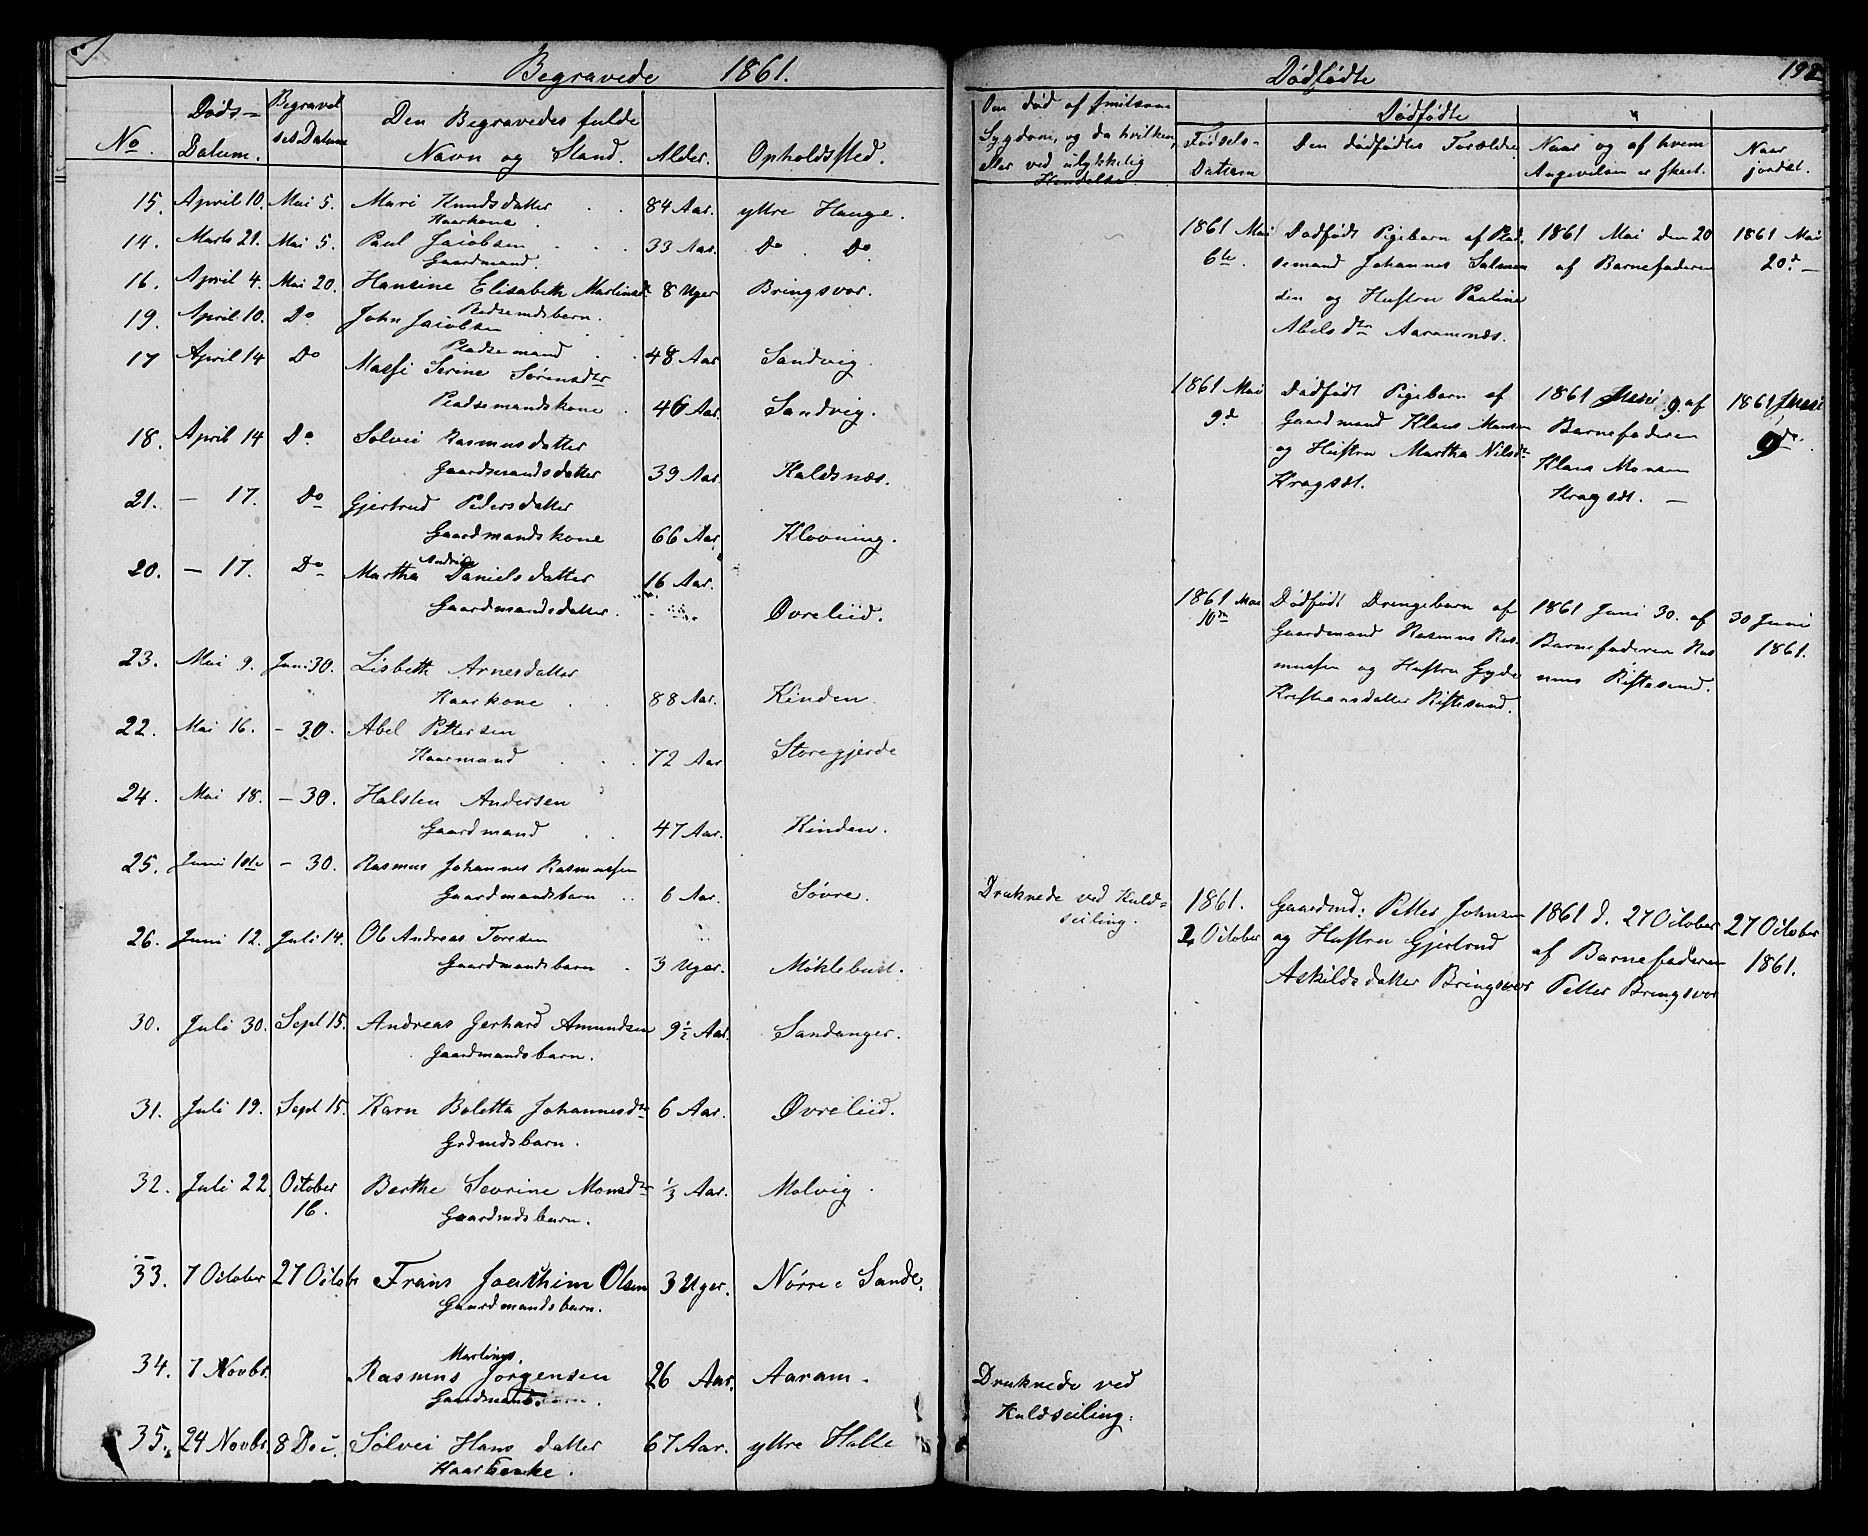 Begravede 1861.
No. Døds-Datum. Begravelsesdatum Den Begravedes fulde Navn og Stand. Alder. Opholdssted.
15. April 10. Mai 5. Mari Knudsdatter 84 Aar. yttre Hauge.
Kaarkone.
14. Marts 21. Mai 5. Paul Jacobsen 33 Aar. Do Do
Gaardmand.
16. April 4. Mai 20. Hansine Elisabeth Martinsdr 8 Uger Bringsvor.
Pladsemdsbarn.
19. April 10. Do John Jacobsen
Pladsemand 48 Aar Sandvig.
17 April 14 Do Massi Serine Sørensdtr
Pladsemandskone 46 Aar. Sandvig.
18. April 14 Do Solvei Rasmusdatter
Gaardmandsdatter 39 Aar. Kaldsnæs.
21. - 17. Do Gjertrud Pedersdatter
Gaardmandskone 66 Aar, Klovning.
20. - 17. Do Martha Andrea Danielsdatter 16 Aar.
Gaardmandsdatter. Øvreliid.
23. Mai 9. Juni 30. Lisbeth Arnesdatter
Kaarkone 88 Aar. Kinden.
22. Mai 16. - 30. Abel Pettersen
Kaarmand 72 Aar Storegjerde
24. Mai 18. - 30. Halsten Andersen
Gaardmand 47 Aar. Kinden.
25. Juni 1ste - 30. Rasmus Johannes Rasmussen
Gaardmandsbarn 6 Aar. Søvre.
26. Juni 12. Juli 14. Ole Andreas Toresen
Gaardmandsbarn 3 Uger. Møklebust.
30. Juli 30. Sept 15. Andreas Gerhard Amundsen 9½ Aar. Sandanger.
Gaardmandsbarn.
31. Juli 19. Sept 15. Karn Boletta Johannesdtr 6 Aar. Øvreliid.
Grdmdsbarn.
32. Juli 22. October 16. Berthe Sevrine Monsdtr 1/3 Aar. Molvig.
Gaardmdsbarn.
33. 7 October 27 Octobr Frans Joachim Olsen 3 Uger. Nørre Sande.
Gaardmandsbarn.
34. 7 Novbr. Rasmus Martinus. Jørgensen 26 Aar. Aaram.
Gaardmands
35. 24 Novbr. 8 Dec. Sølvei Hans datter 67 Aar. yttre Halle
Kaarenke.
Dødfødte 198
Om død af smitsom
Sygdom, og da hvilken,
eller ved ulykkelig
Hendelse
Dødfødte
Fødsels-Datum
Den dødfødtes Forældre
Naar og af hvem
Angivelsen er skeet.
Naar
jordet.
1861 Mai Dødfødt Pigebarn af Plad- 1861 Mai den 20 1861 Mai
6te. semand Johannes Salmon af Barnefaderen 20d
den og Hustru Pauline
Abelsdtr Aaramnæs.
1861 Mai Dødfødt Pigebarn af 1861 Mai 9. af 1861 Mai
9d Gaardmand Klaus Monsen Barnefaderen 9de.
og Hustru Martha Nilsdtr Klaus Monsen
Kragsæt. Kragsæt.
1861 Mai Dødfødt Drengebarn af 1861 Juni 30. af 30 Juni
10de Gaardmand Rasmus Ras- Barnefaderen Ras- 1861.
mussen og Hustru Gyde mus Riste sund.
Kristiansdatter Ristesund.
Druknede ved Kuld-
seiling.
1861. Gaardmd: Petter Johnsen 1861 d. 27 October 27 October
2 October og Hustru Gjertrud af Barnefaderen 1861.
Askildsdatter Bringsvor Petter Bringsvor
Druknede ved
Kuldseiling.